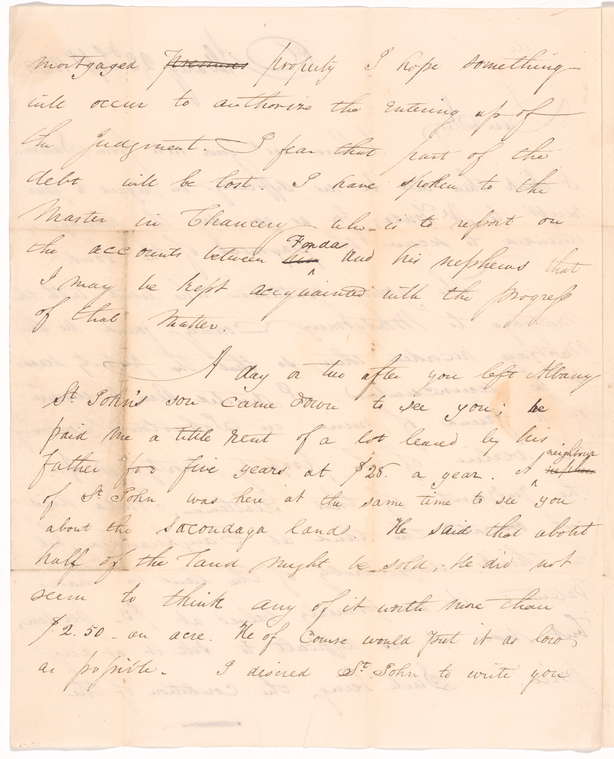 mortgaged premises property I hope something
will occur to authorize the entering up of
the Judgment. I fear that part of the
debt will be lost. I have spoken to the
Master in Chancery who is to report on
the accounts between Fonda and his nephews that
I may be kept acquainted with the progress
of that matter.
A day or two after you left Albany
St. John's son came down to see you; he
paid me a title rent of a lot leased by his
father for five years at $28 a year. A neighbour
of St John was here at the same time to see you
about the sacondaga lands. He said that about
half of the land might be sold, He did not
seem to think any of it worth more than
$2.50 an acre. He of course would put it as low
as possible. I desired St John to write you